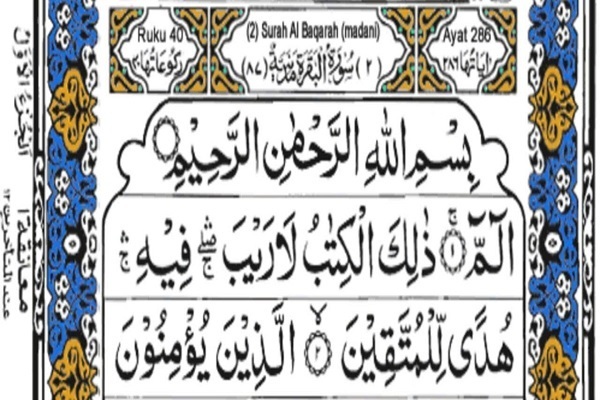 Ruku 40
(2) Surah Al Baqarah (madani)
Ayat 286
اٰیَاتُهَا ٢٨٦
(٢) سُوْرَةُ الْبَقَرَةِ مَدَنِيَّةٌ (٨٧)
رُكُوْعَاتُهَا ٤٠
بِسْمِ اللّٰهِ الرَّحْمٰنِ الرَّحِيْمِ
الٓمّٓ ۚ ﴿١﴾ ذٰلِكَ الْكِتٰبُ لَا رَيْبَ ۛۖ فِيْهِ ۛۚ
هُدًى لِّلْمُتَّقِيْنَ ۙ ﴿٢﴾ الَّذِيْنَ يُؤْمِنُوْنَ
الجزء الاول
معانقة ١
عند المتاخرين ١٢